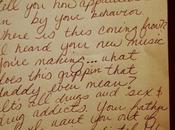 tell you how appalled
by your behavior
Where is this coming from?
I heard your new music
you're making... what
does this grippin that
daddy even mean?
It's all drugs and sex &
drug addicts. Your father
want you out of